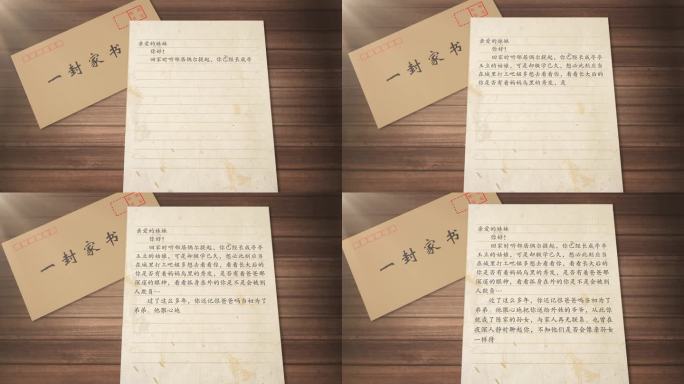 一封家书
亲爱的妹妹
你好！
回家时听邻居偶尔提起，你已经长成亭
一封家书
亲爱的妹妹
你好！
回家时听邻居偶尔提起，你已经长成亭亭
玉立的姑娘，可是却辍学已久，想必此刻应当
在城里打工吧姐多想去看看你，看看长大后的
你是否有着妈妈乌黑的秀发，是
一封家书
亲爱的妹妹
你好！
回家时听邻居偶尔提起，你已经长成亭亭
玉立的姑娘，可是却辍学已久，想必此刻应当
在城里打工吧姐多想去看看你，看看长大后的
你是否有着妈妈乌黑的秀发，是否有着爸爸那
深邃的眼神，看看孤身在外的你是不是会被别
人欺负…
过了这么多年，你还记得爸爸吗当初为了
弟弟，他狠心地
一封家书
亲爱的妹妹
你好！
回家时听邻居偶尔提起，你已经长成亭亭
玉立的姑娘，可是却辍学已久，想必此刻应当
在城里打工吧姐多想去看看你，看看长大后的
你是否有着妈妈乌黑的秀发，是否有着爸爸那
深邃的眼神，看看孤身在外的你是不是会被别
人欺负…
过了这么多年，你还记得爸爸吗当初为了
弟弟，他狠心地把你送给外姓的爷爷，从此你
就成了陈家的孙女，与家人再无联系，也曾在
夜深人静时聊起你，不知他们是否会像亲孙女
一样待